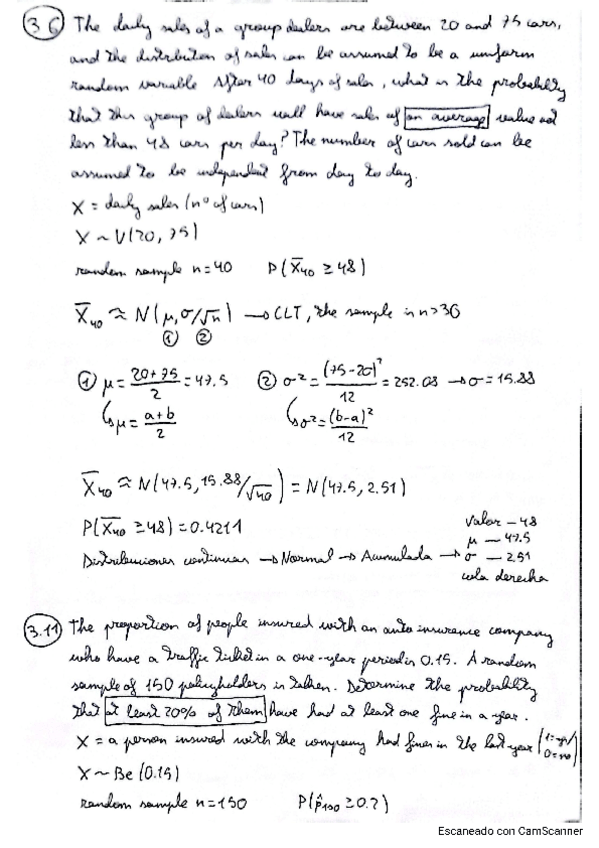 3.6 The daily sales of a group dealers are between 20 and 75 cars,
and the distribution of sales can be assumed to be a uniform
random variable. After 40 days of sales, what is the probability
that this group of dealers will have sales of an average value not
less than 48 cars per day? The number of cars sold can be
assumed to be independent from day to day.
X = daily sales (nº of cars)
X ~ U(20, 75)
random sample n=40 P(X̄₄₀ ≥ 48)
X̄₄₀ ≈ N(μ, σ/√n) → CLT, the sample is n>30
① ②
① μ = (20+75)/2 = 47.5 ② σ² = (75-20)²/12 = 252.08 → σ = 15.88
↳ μ = (a+b)/2 ↳ σ² = (b-a)²/12
X̄₄₀ ≈ N(47.5, 15.88/√40) = N(47.5, 2.51)
P(X̄₄₀ ≥ 48) = 0.4211
Valor — 48
μ — 47.5
Distribuciones continuas → Normal → Acumulada → σ — 2.51
cola derecha
3.11 The proportion of people insured with an auto insurance company
who have a traffic ticket in a one-year period is 0.15. A random
sample of 150 policyholders is taken. Determine the probability
that at least 20% of them have had at least one fine in a year.
X = a person insured with the company had fines in the last year (1=yes/
0=no)
X ~ Be(0.15)
random sample n=150 P(p̂₁₅₀ ≥ 0.2)
Escaneado con CamScanner